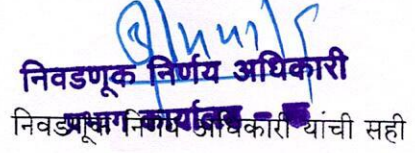 निवडणूक निर्णय अधिकारी
प्रभाग कार्यालय -
निवडणूक निर्णय अधिकारी यांची सही